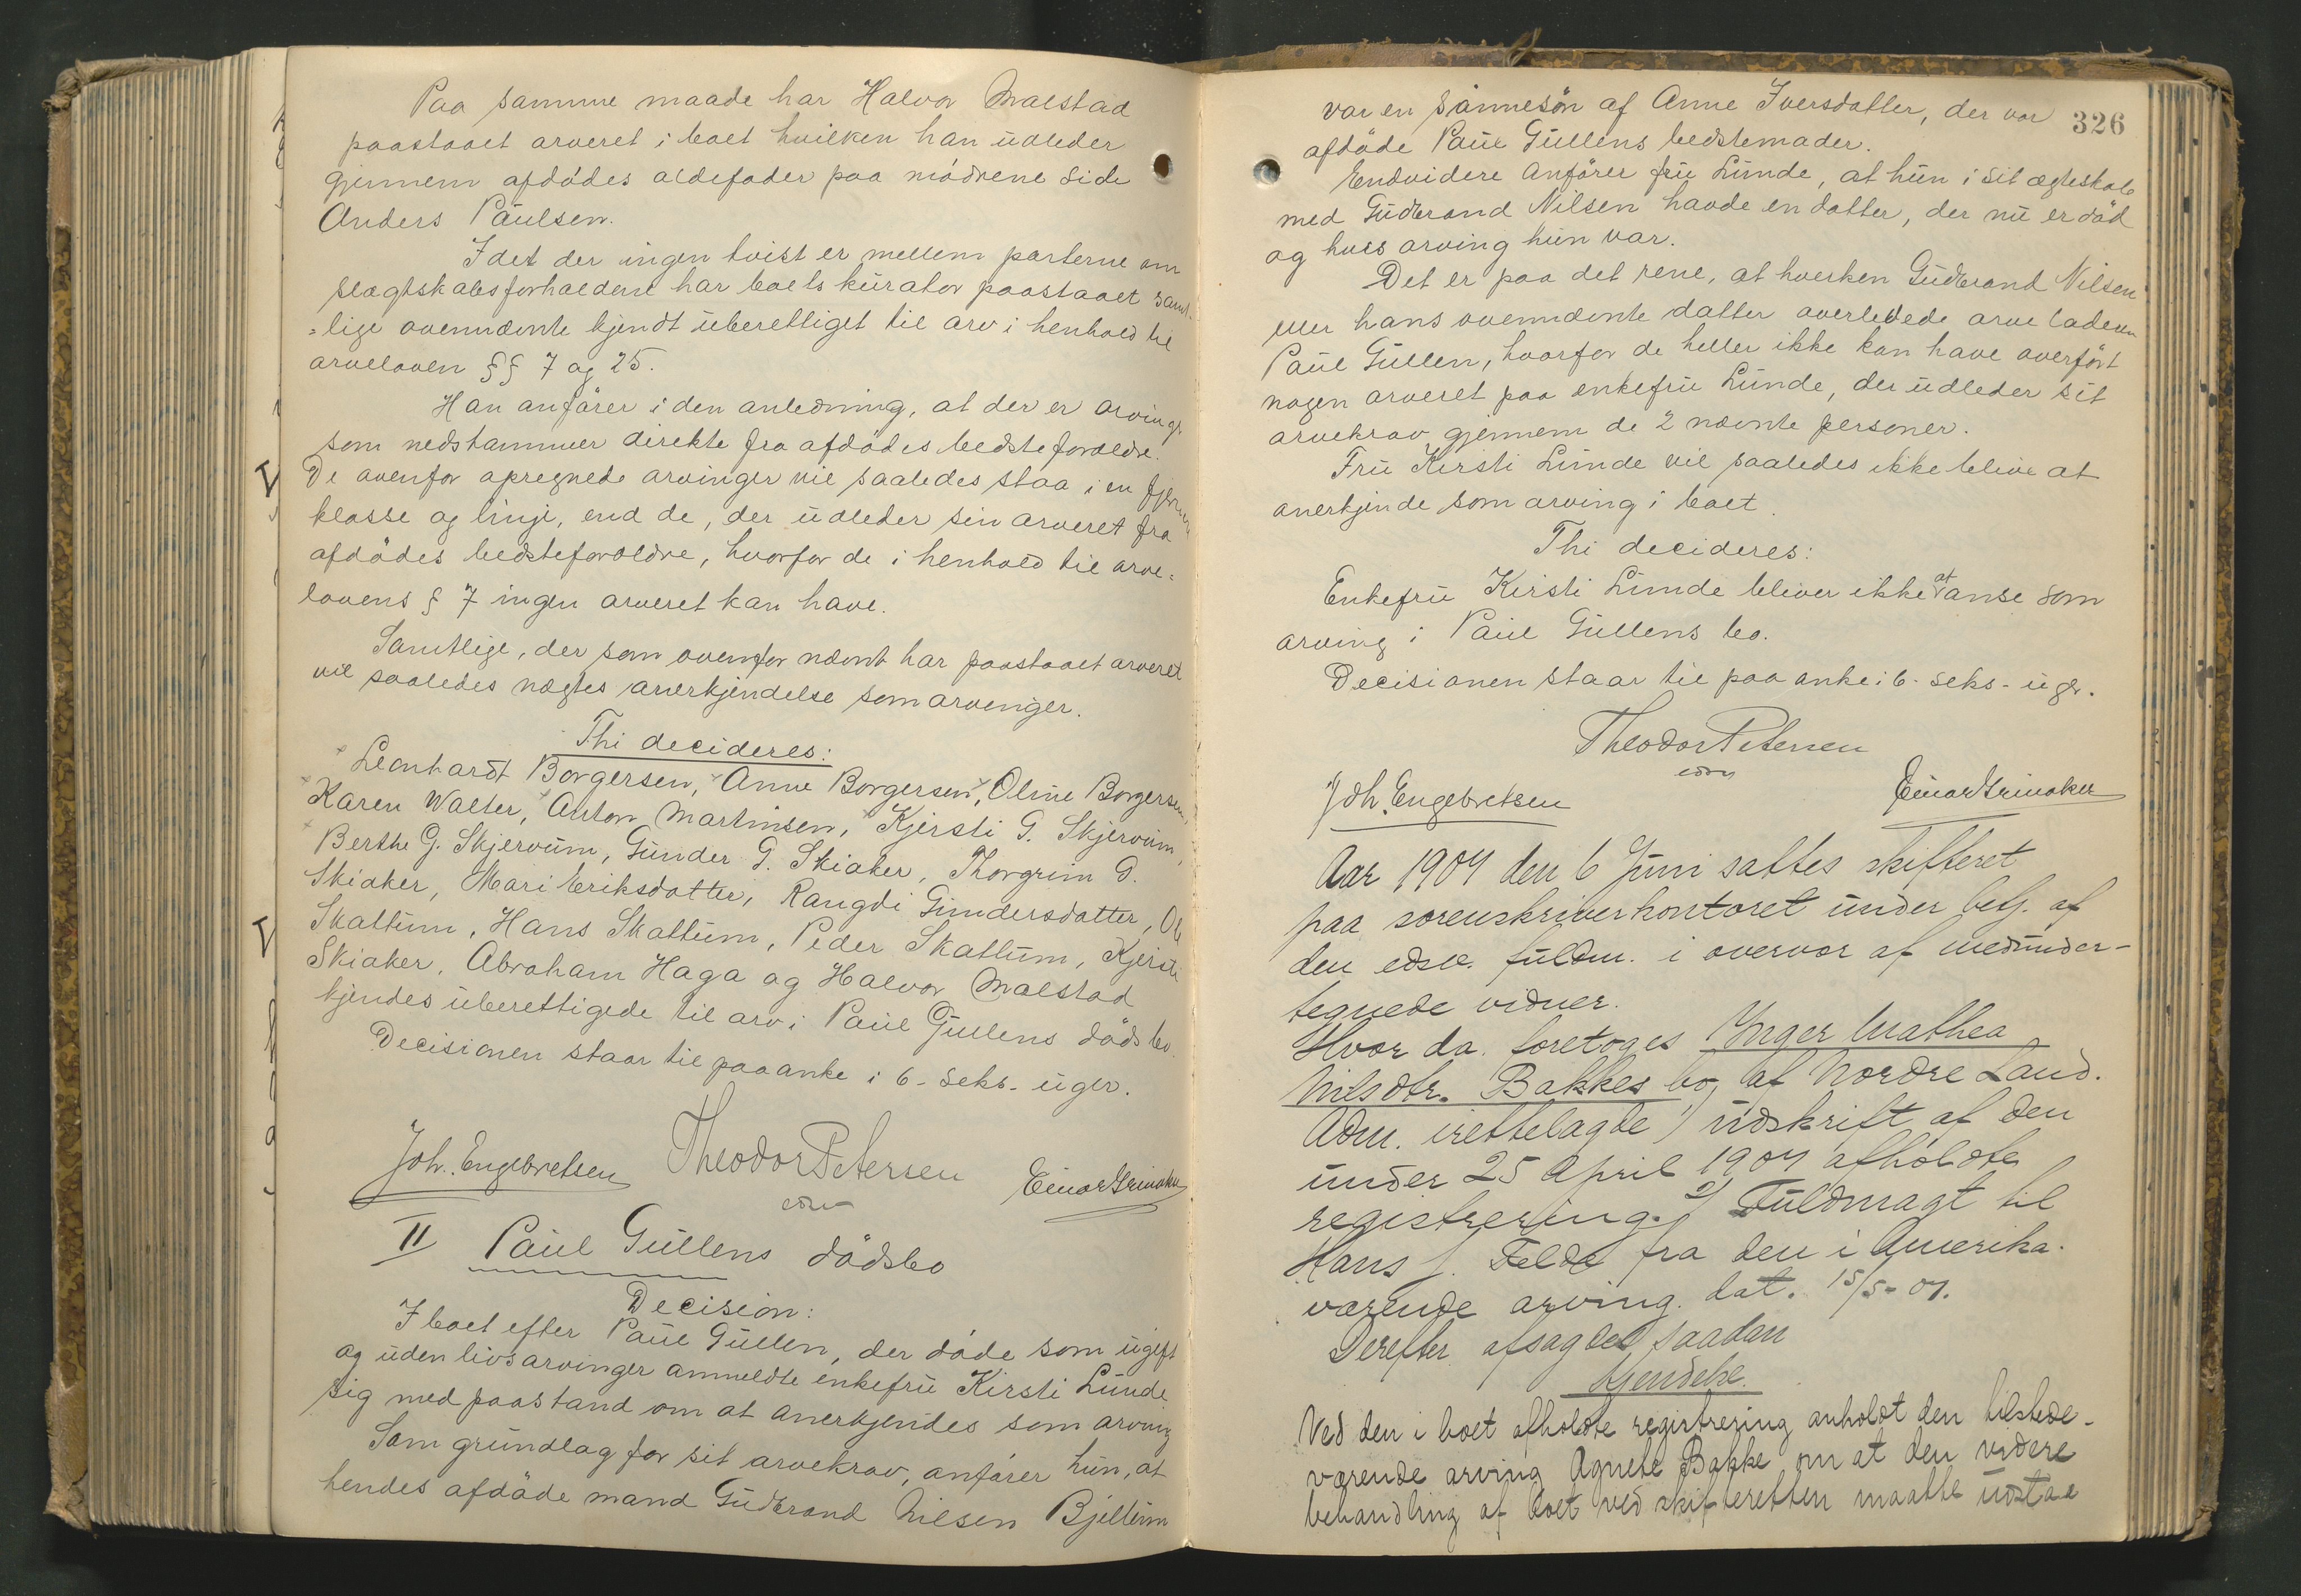 Paa samme maade har Halvor Malstad
paastaaet arveret i boet hvilken han udleder
gjennem afdødes oldefader paa mødrene side
Anders Paulsen.
Idet der ingen tvist er mellem parterne om
slægtskabsforholdene har boets kurator paastaaet samt-
=lige ovennævnte kjendt uberettiget til arv i henhold til
arveloven §§ 7 og 25.
Han anfører i den anledning, at der er arvinger
som nedstammer direkte fra afdødes bedsteforældre.
De ovenfor opregnede arvinger vil saaledes staa i en fjernere
klasse og linje, end de, der udleder sin arveret fra
afdødes bedsteforældre, hvorfor de i henhold til arve=
lovens § 7 ingen arveret kan have.
Samtlige, der som ovenfor nævnt har paastaaet arveret
vil saaledes nægtes anerkjendelse som arvinger.
Thi decideres:
Leonhardt Borgersen, Anne Borgersen, Oline Borgersen,
Karen Walter, Anton Martinsen, Kjersti G. Skjervum,
Berthe G. Skjervum, Gunder G. Skiaker, Thorgrim G.
Skiaker, Mari Eriksdatter, Rangdi Gundersdatter, Ole
Skattum, Hans Skattum, Peder Skattum, Kjersti
Skiaker, Abraham Haga og Halvor Malstad
kjendes uberettigede til arv i Paul Gullens dødsbo.
Decisionen staar til paaanke i 6- seks- uger.
Joh. Engebretsen Theodor Petersen Einar Grinaker
edsv
II Paul Gullens dødsbo
Decision:
I boet efter Paul Gullen, der døde som ugift
og uden livsarvinger anmeldte enkefru Kirsti Lunde
sig med paastand om at anerkjendes som arving
Som grundlag for sit arvekrav, anfører hun, at
hendes afdøde mand Gudbrand Nilsen Bjellum
326
var en sønnesøn af Anne Iversdatter, der var
afdøde Paul Gullens bedstemoder.
Endvidere anfører fru Lunde, at hun i sit ægteskab
med Gudbrand Nilsen havde en datter, der nu er død
og hvis arving hun var.
Det er paa det rene, at hverken Gudbrand Nilsen
eller hans ovennævnte datter overlevede arveladeren
Paul Gullen, hvorfor de heller ikke kan have overført
nogen arveret paa enkefru Lunde, der udleder sit
arvekrav gjennem de 2 nævnte personer.
Fru Kirsti Lunde vil saaledes ikke blive at
anerkjende som arving i boet.
Thi decideres:
Enkefru Kirsti Lunde bliver ikke at anse som
arving i Paul Gullens bo.
Decisionen staar til paaanke i 6- seks- uger.
Theodor Petersen
edsv
Joh. Engebretsen Einar Grinaker
Aar 1907 den 6 Juni sattes skifteret
paa sorenskriverkontoret under betj. af
den edsv. fuldm. i overvær af medunder-
tegnede vidner.
Hvor da foretoges Inger Mathea
Nilsdtr. Bakkes bo, af Nordre Land.
Adm. irettelagde 1) udskrift af den
under 25 April 1907 afholdte
registrering. 2) Fuldmagt til
Hans J. Felde fra den i Amerika
værende arving. dat. 15/5-07.
Derefter afsagdes saadan
kjendelse.
Ved den i boet afholdte registrering anholdt den tilstede-
værende arving Agnete Bakke om at den videre
behandling af boet ved skifteretten maatte udstaa